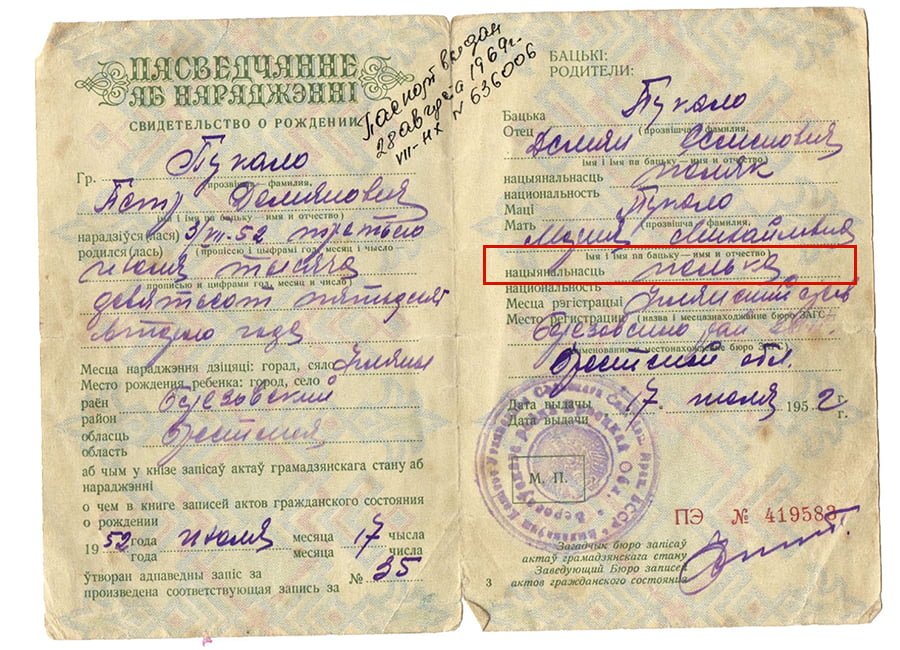 ПАСВЕДЧАННЕ
АБ НАРАДЖЭННІ
СВИДЕТЕЛЬСТВО О РОЖДЕНИИ
Паспорт выдан
28 августа 1969г.
VII-НХ N 636006
Гр. Пукало
прозвішча — фамилия
Петр Демянович
імя і імя па бацьку — имя и отчество)
нарадзіўся(лася) 3/VII-52 третьего
родился(лась) (прописсю і цыфрамі год, месяц і чысло
июля тысяча
прописью и цифрами год, месяц и число)
девятьсот пятьдесят
второго года
Месца нараджэння дзіцяці: горад, сяло
Место рождения ребенка: город, село
раён Березовский
район
обласць Брестская
область
аб чым у кнізе запісаў актаў грамадзянскага стану аб
нараджэнні
о чем в книге записей актов гражданского состояния
о рождении
1952 года июля месяца 17 чысла
года месяца числа
ўтворан адпаведны запіс за № 35
произведена соответствующая запись за
БАЦЬКІ:
РОДИТЕЛИ:
Бацька Пукало
Отец (прозвішча — фамилия,
Демян
імя і імя па бацьку — имя и отчество)
нацыянальнасць поляк
национальность
Маці Пукало
Мать (прозвішча — фамилия,
Мария Михайловна
імя і імя па бацьку — имя и отчество)
нацыянальнасць полька
национальность
Месца рэгістрацыі
Место регистрации (назва і месцазнаходжанне бюро ЗАГС —
Березовского
наименование и местонахождение бюро ЗАГС)
Брестской обл.
Дата выдачы 17 июля 1952 г.
Дата выдачи г.
М. П.
ПЭ № 419588
Загадчык бюро запісаў
актаў грамадзянскага стану
Заведующий Бюро записей
актов гражданского состояния
3